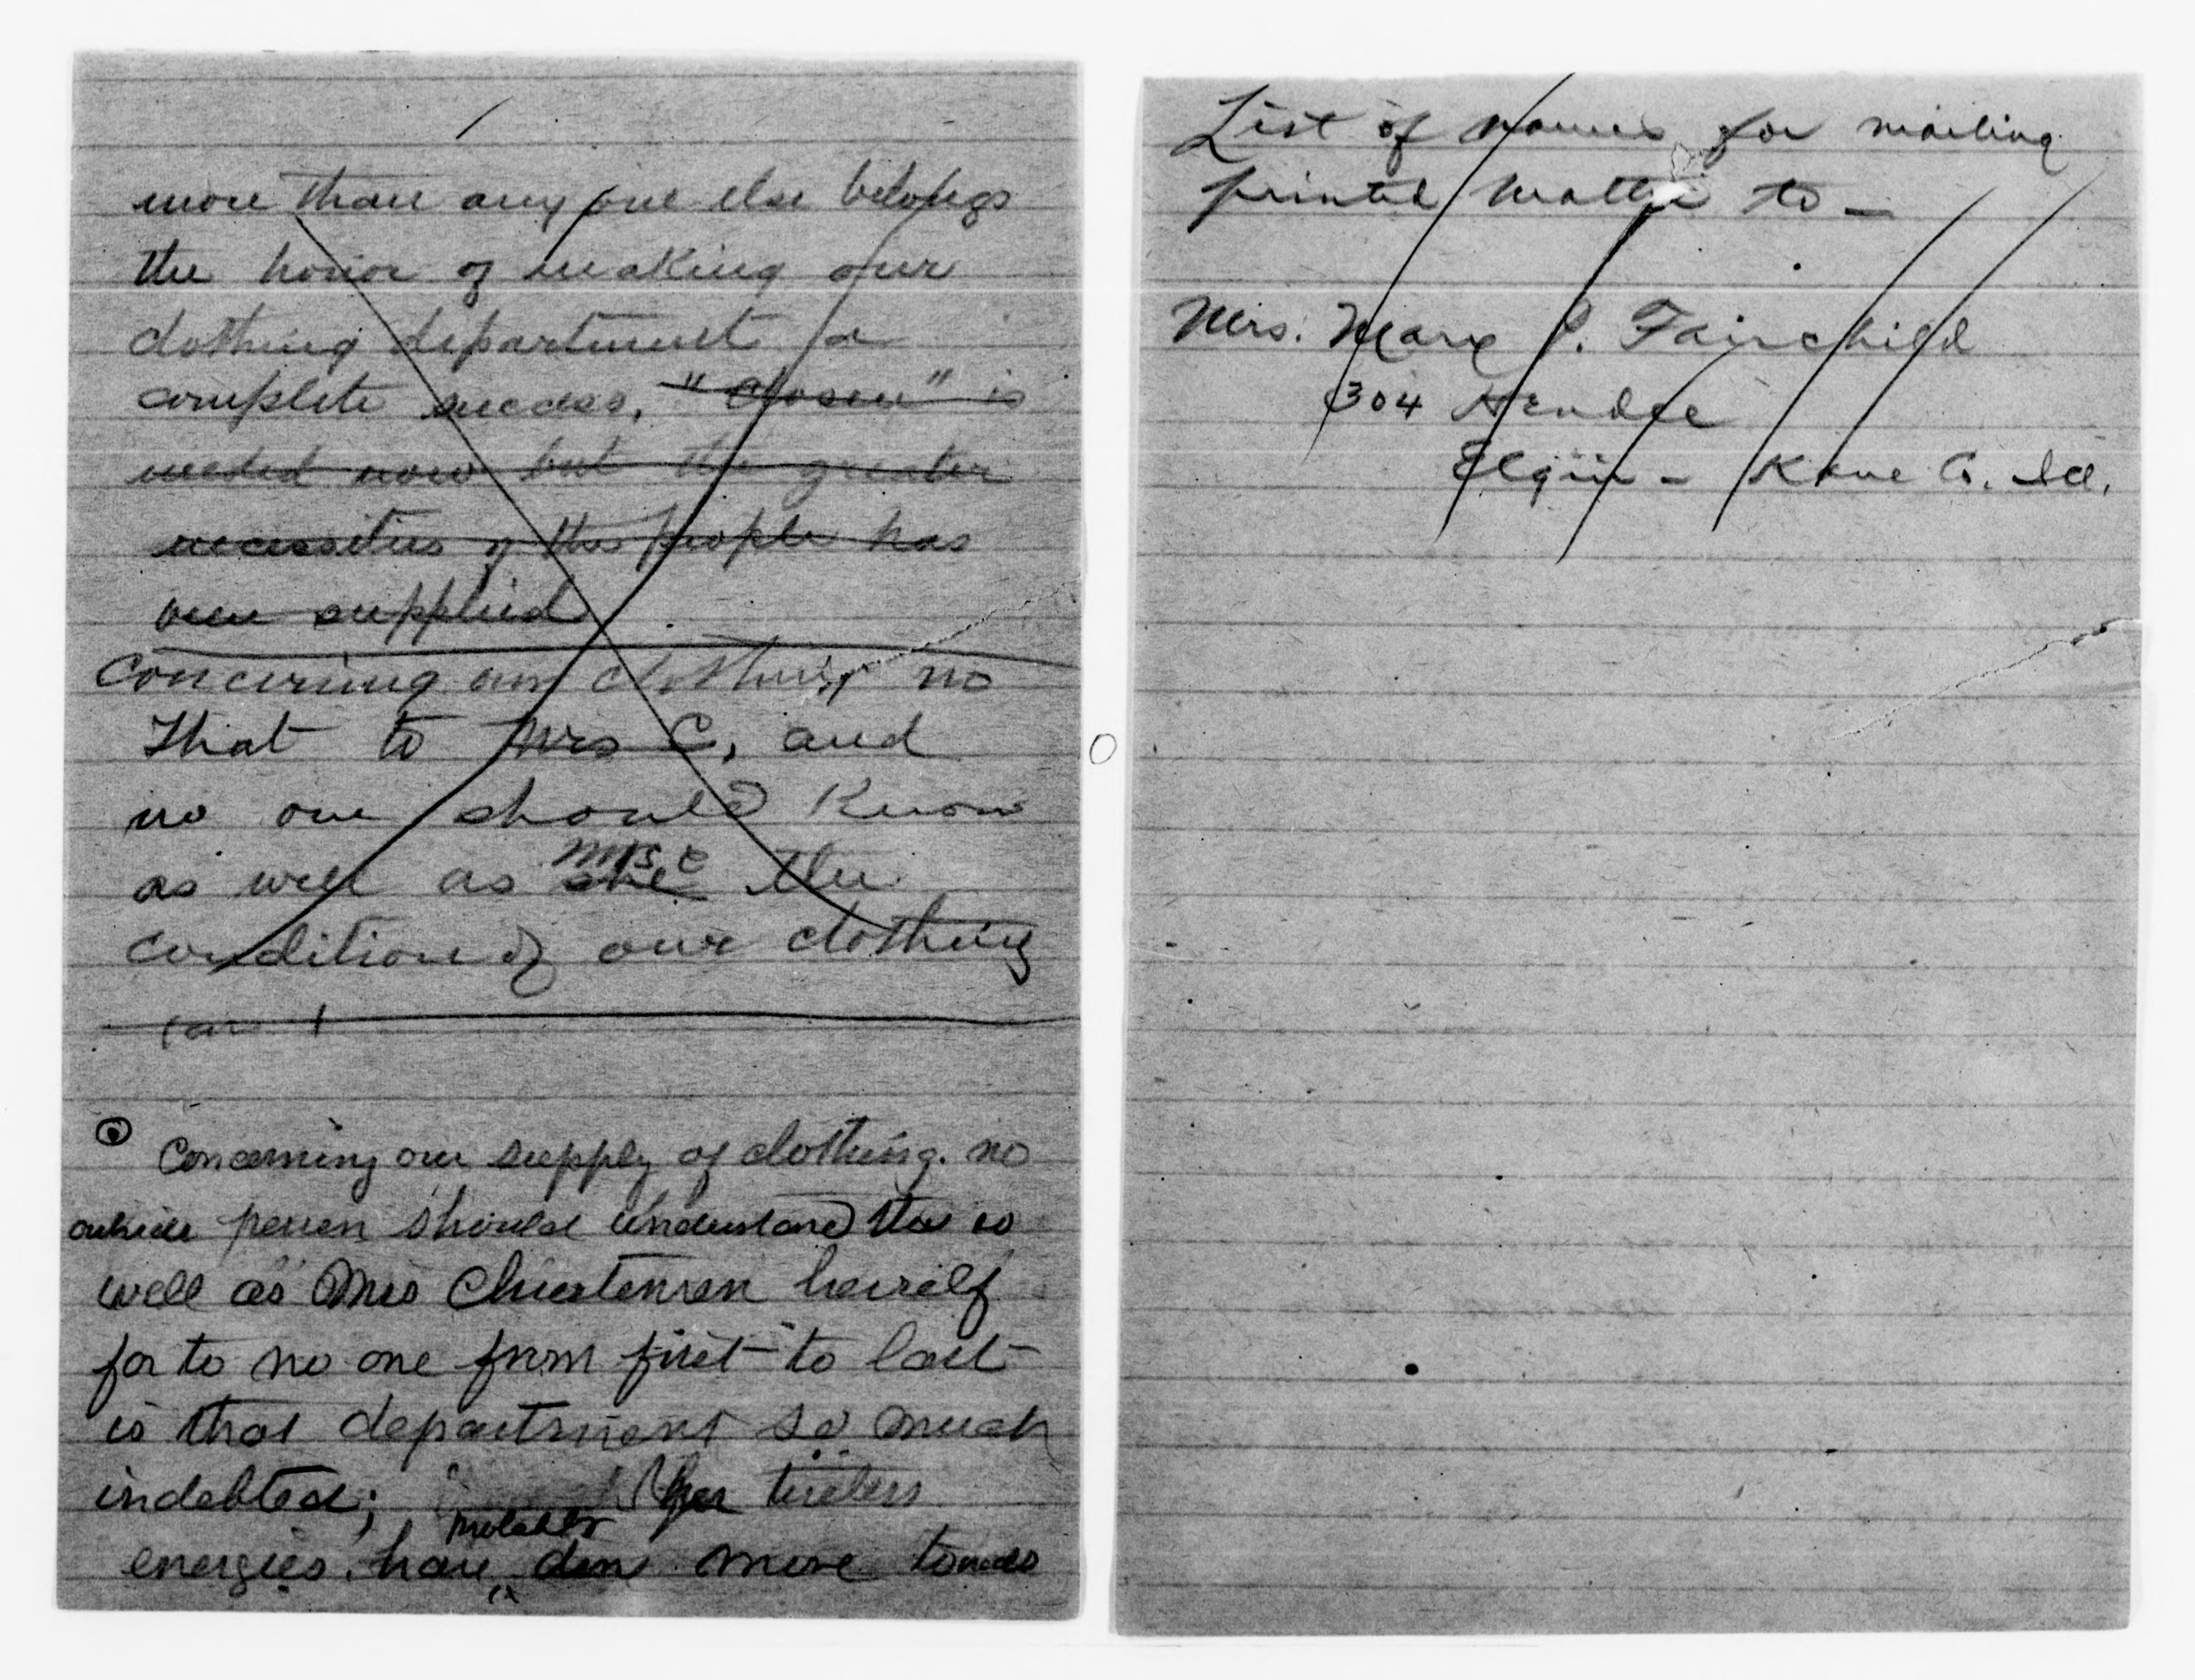 more than any one else belongs
the honor of making our
clothing department a
complete success, is
needed now but the greater
necessities of the people has
been supplied
Concerning our clothing no
That to Mrs C, and
no one should know
as well as she Mrs C the
condition of our clothing
Concerning our supply of clothing. no
outside person should understand this so
well as Mrs Christensen herself
for to no one from first to last
is that department so much
indebted; her tireless
probably
energies, have done more towards
List of names for mailing
printed matter to —
Mrs. Mary P. Fairchild
304 Hendee
Elgin — Kane Co. Ill.